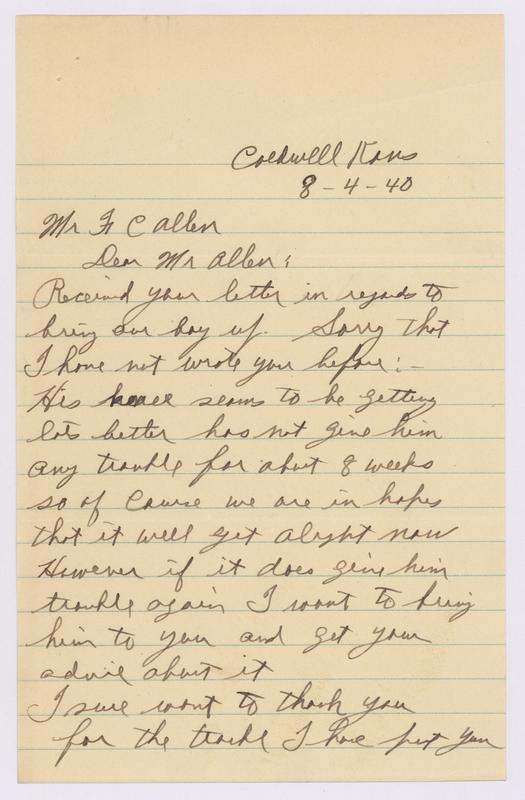 Caldwell Kans
8-4-40
Mr F C Allen
Dear Mr Allen;
Received your letter in regards to
bring our boy up. Sorry that
I have not wrote you before:-
His knee seams to be getting
lots better has not give him
any trouble for about 8 weeks
so of course we are in hopes
that it will get alright now
However if it does give him
trouble again I want to bring
him to you and get your
advice about it
I sure want to thank you
for the trouble I have put you